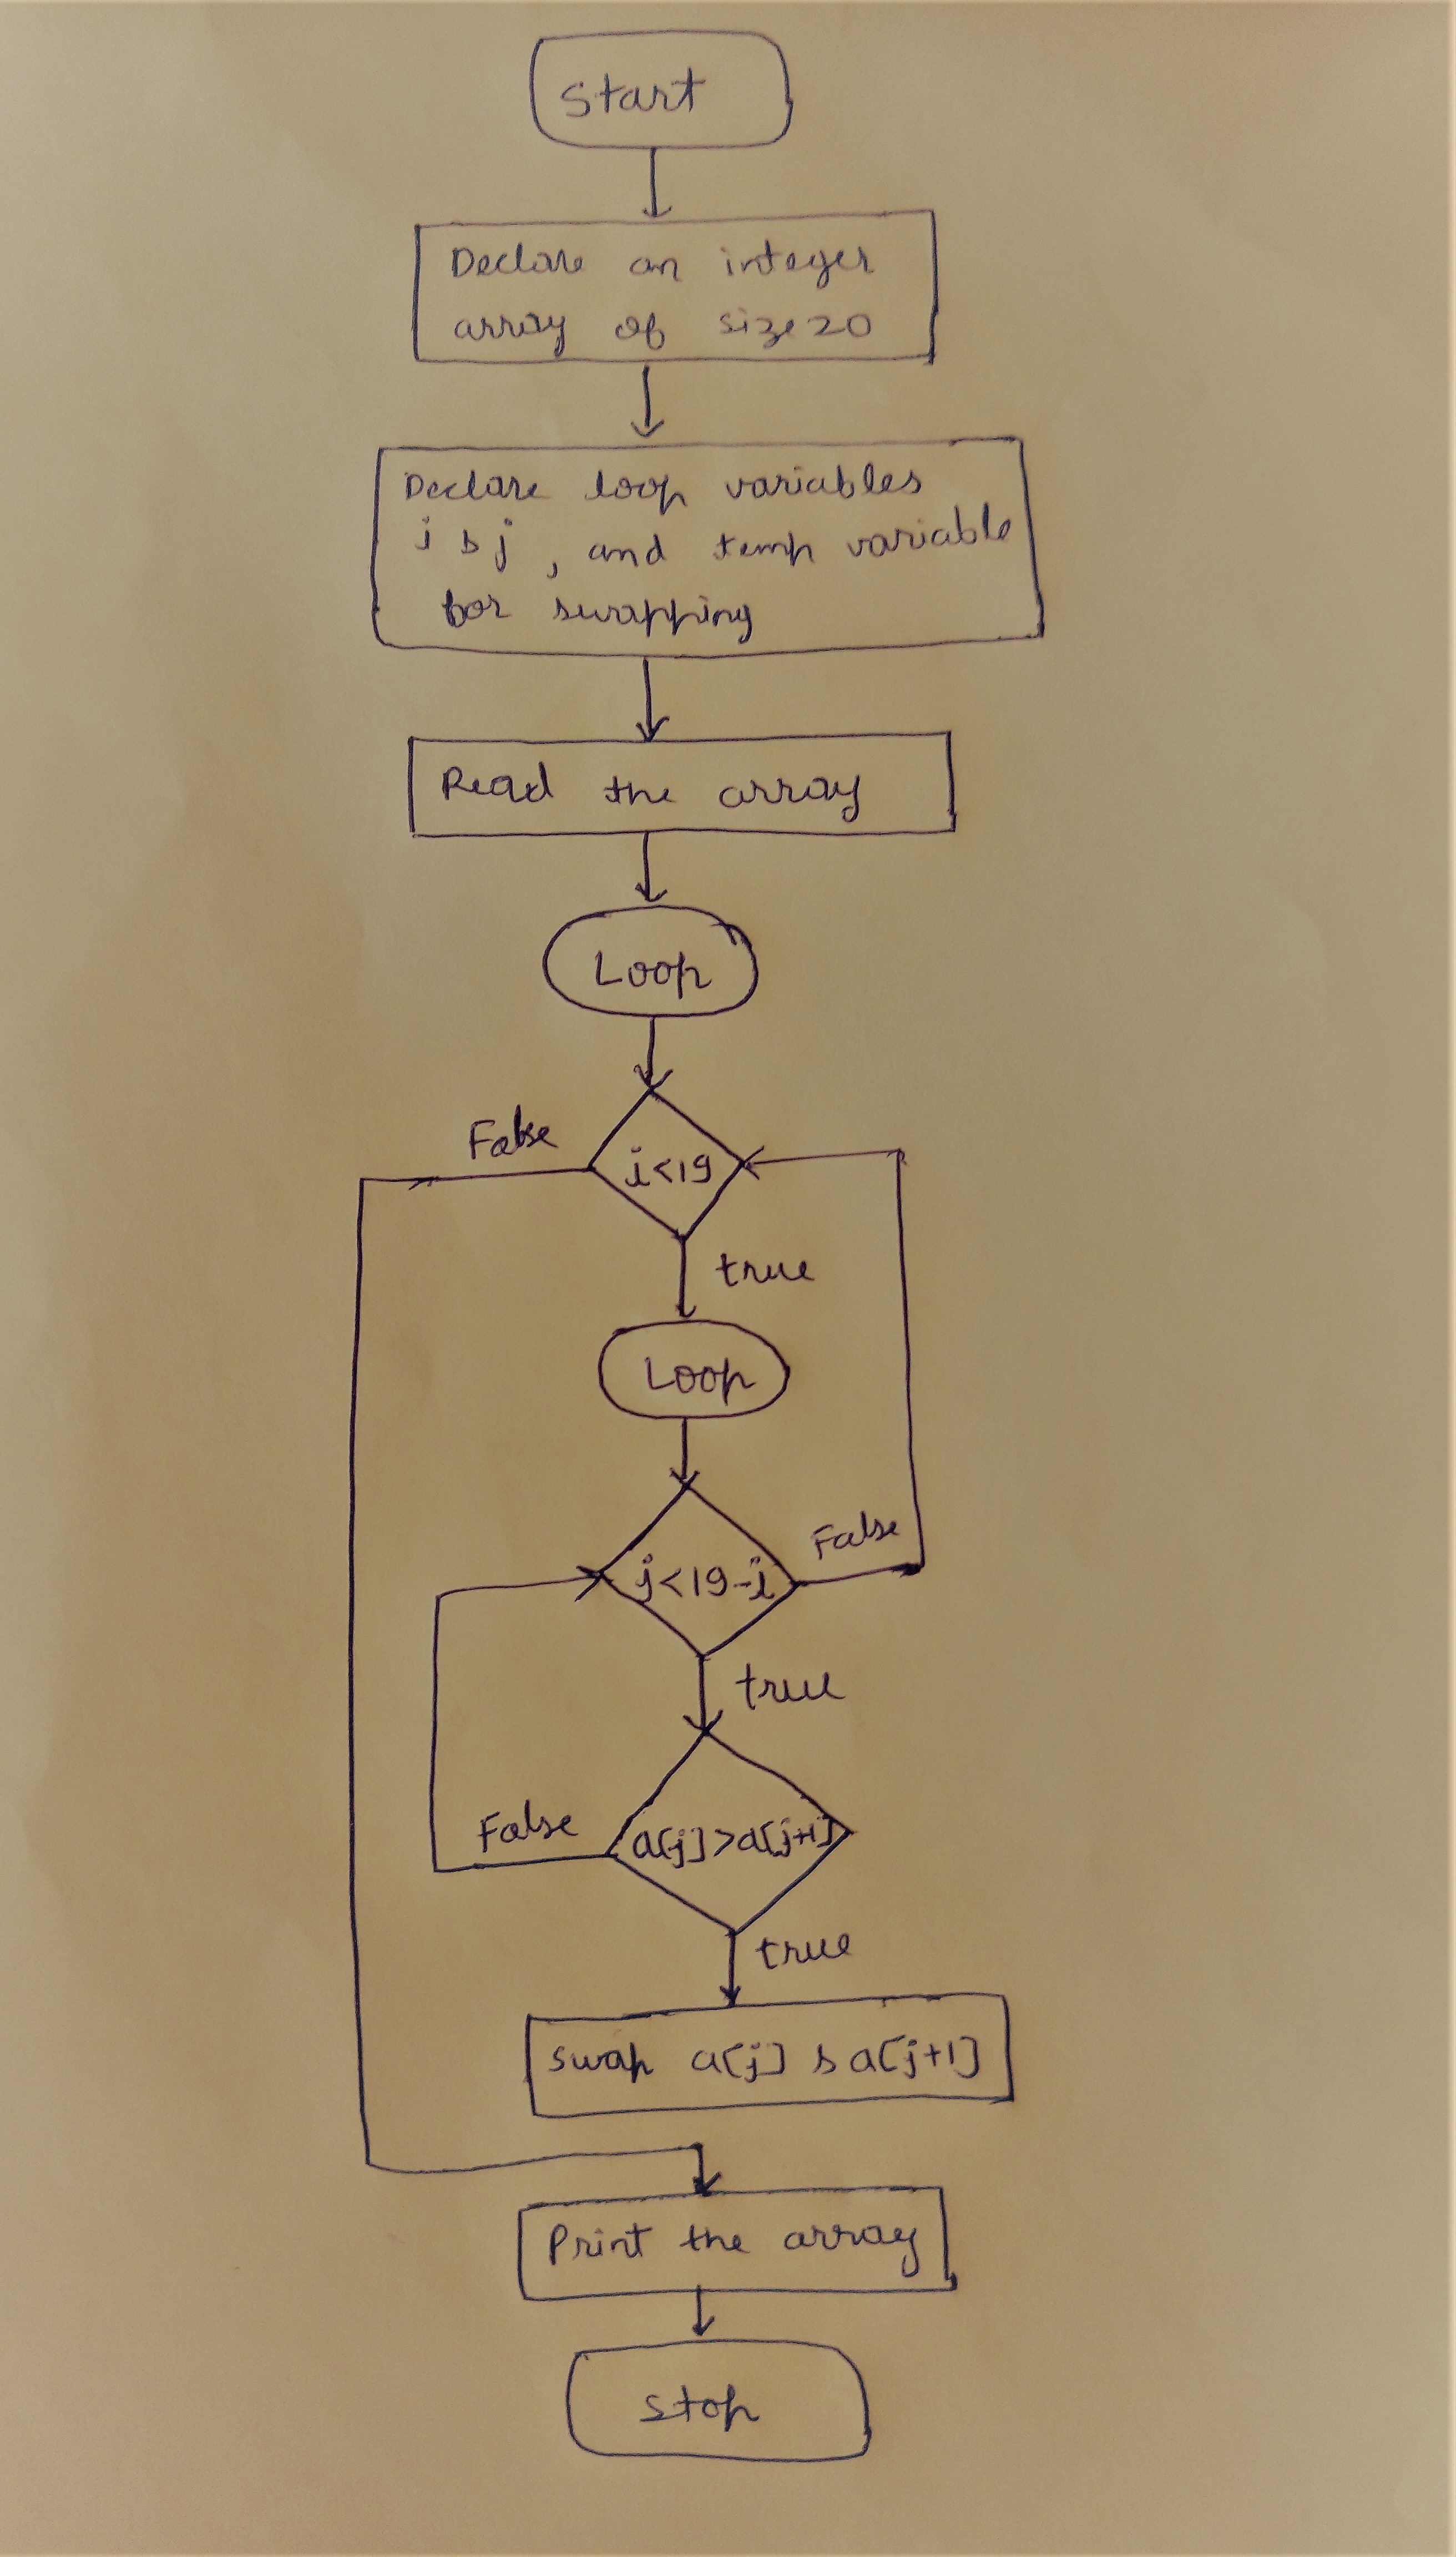 Start
Declare an integer
array of size 20
Declare loop variables
i & j , and temp variable
for swapping
Read the array
Loop
False
i<19
true
Loop
False
j<19-i
true
False
a[j]>a[j+1]
true
swap a[j] & a[j+1]
Print the array
stop